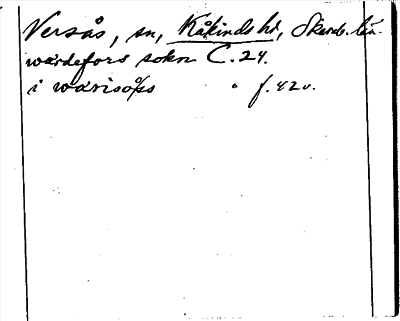 Versås, sn, Kåkinds hd, Skarab. län.
wærdefors sokn C. 24.
i wærisoss " f. 42v.